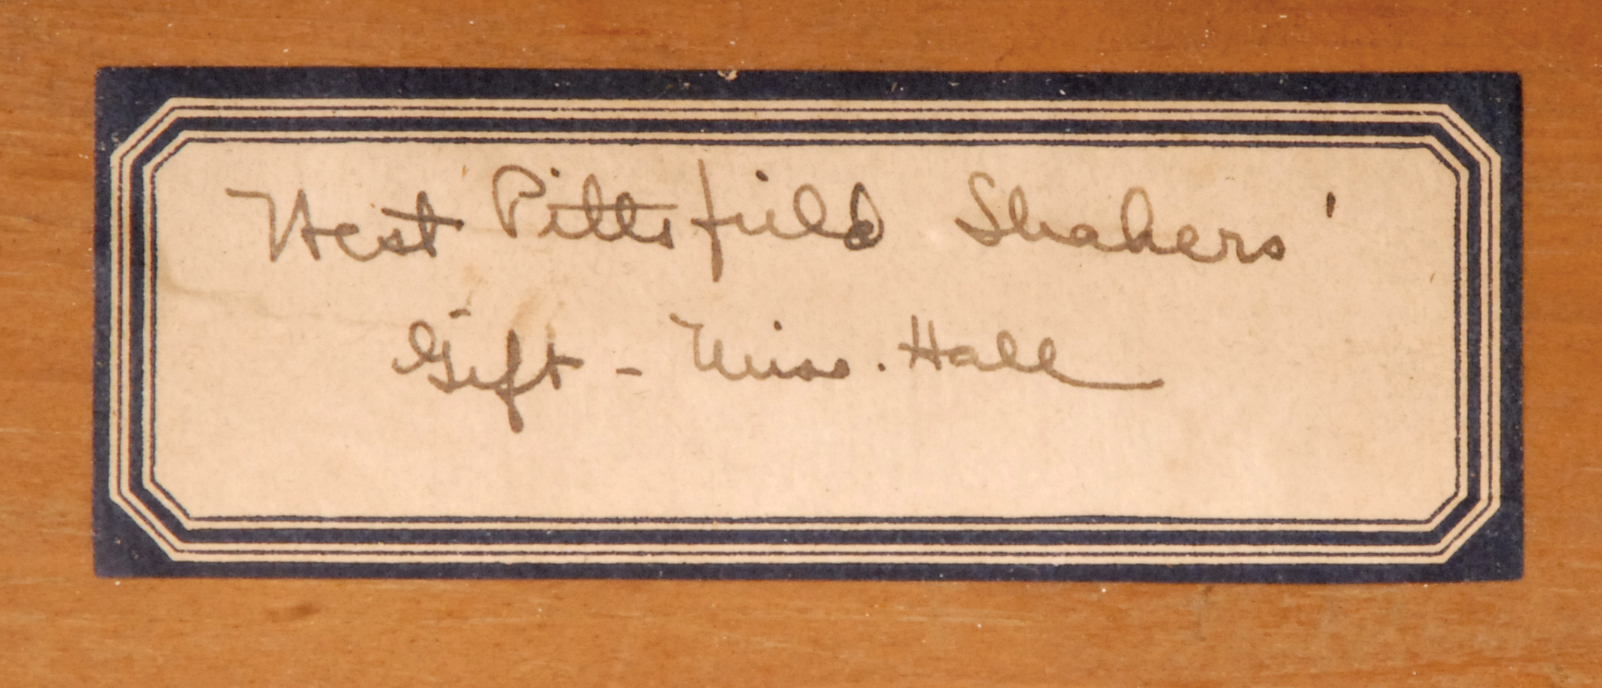 West Pittsfield Shakers'
Gift - Miss. Hall